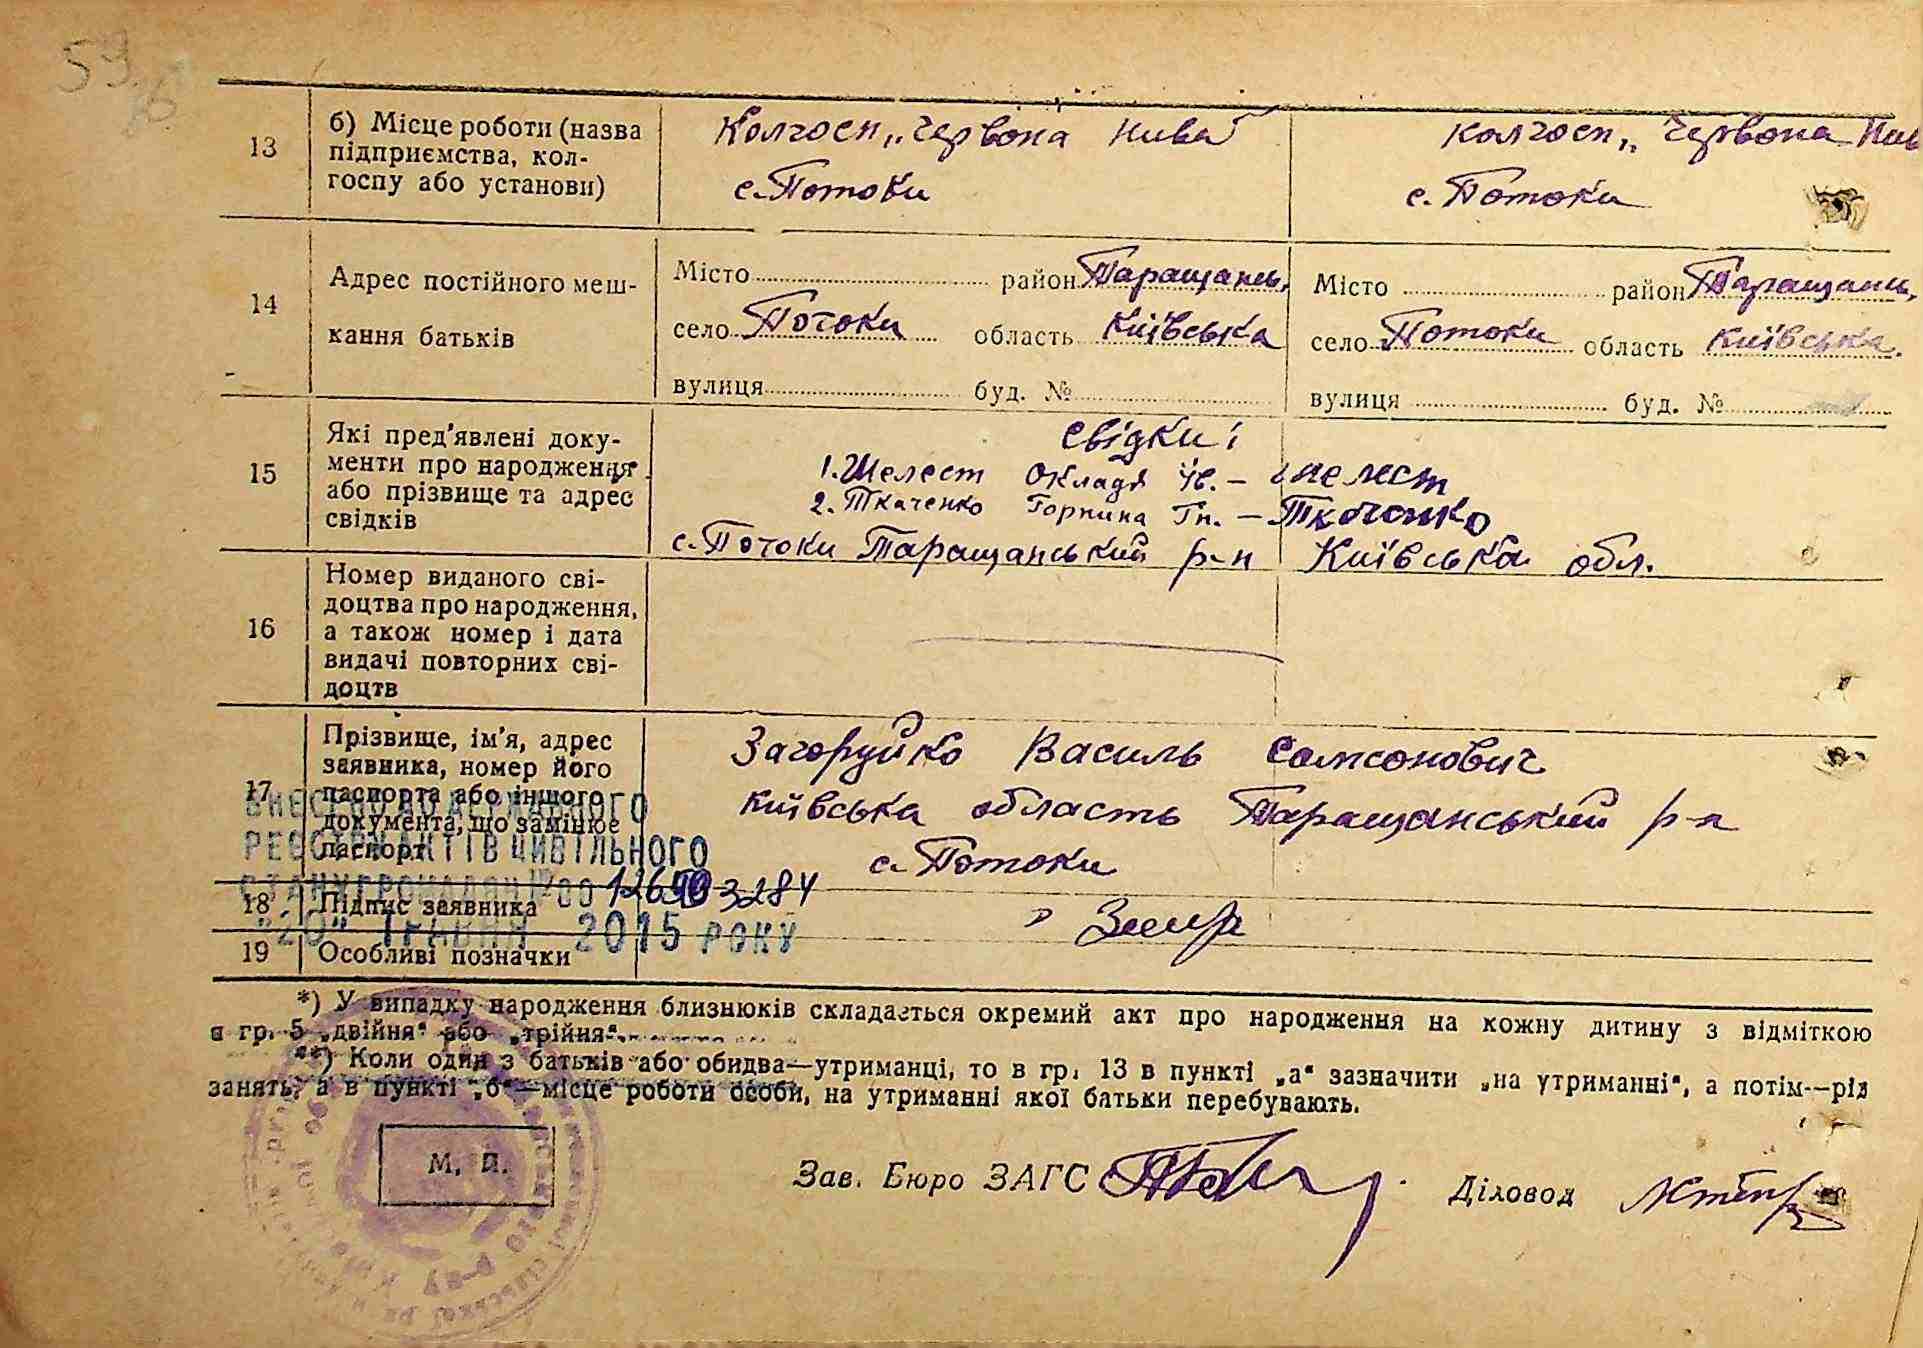 59
13
б) Місце роботи (назва
підприємства, кол-
госпу або установи)
Колгосп „Червона Нива"
с. Потоки
Колгосп „Червона Нив
с. Потоки
14
Адрес постійного меш-
кання батьків
Місто район Таращанськ.
село Потоки область Київська
вулиця буд. №
Місто район Таращанськ.
село Потоки область Київська.
вулиця буд. №
15
Які пред'явлені доку-
менти про народження
або прізвище та адрес
свідків
Свідки:
1. Шелест Оклада Ів. – Шелест
2. Ткаченко Горпина Гн. – Ткаченко
с. Потоки Таращанський р-н Київська обл.
16
Номер виданого сві-
доцтва про народження,
а також номер і дата
видачі повторних сві-
доцтв
17
Прізвище, ім'я, адрес
заявника, номер його
паспорта або іншого
документа, що замінює
паспорт
Загоруйко Василь Самсонович
Київська область Таращанський р-н
с. Потоки
ВНЕСЕНО ДО ДЕРЖАВНОГО
РЕЄСТРУ АКТІВ ЦИВІЛЬНОГО
СТАНУ ГРОМАДЯН № 00
"20" ТРАВНЯ 2015 РОКУ
18
Підпис заявника
19
Особливі позначки
*) У випадку народження близнюків складається окремий акт про народження на кожну дитину з відміткою
в гр. 5 „двійня" або „трійня".
**) Коли один з батьків або обидва—утриманці, то в гр. 13 в пункті „а" зазначити „на утриманні", а потім—рід
занять, а в пункті „б"—місце роботи особи, на утриманні якої батьки перебувають.
М. П.
Зав. Бюро ЗАГС
Діловод